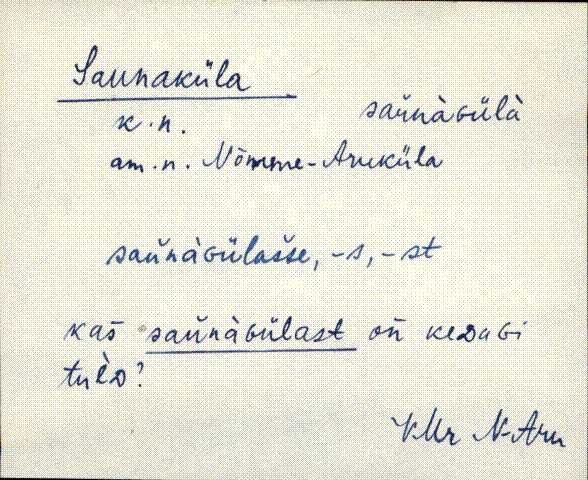 Saunaküla
k.n. saŭnàGülà
am.n. Nõmme-Aruküla
saŭnàGülašse, -s, -st
kas̄ saŭnàGülast on̆ keDaGi
tulD?
VMr N-Aru